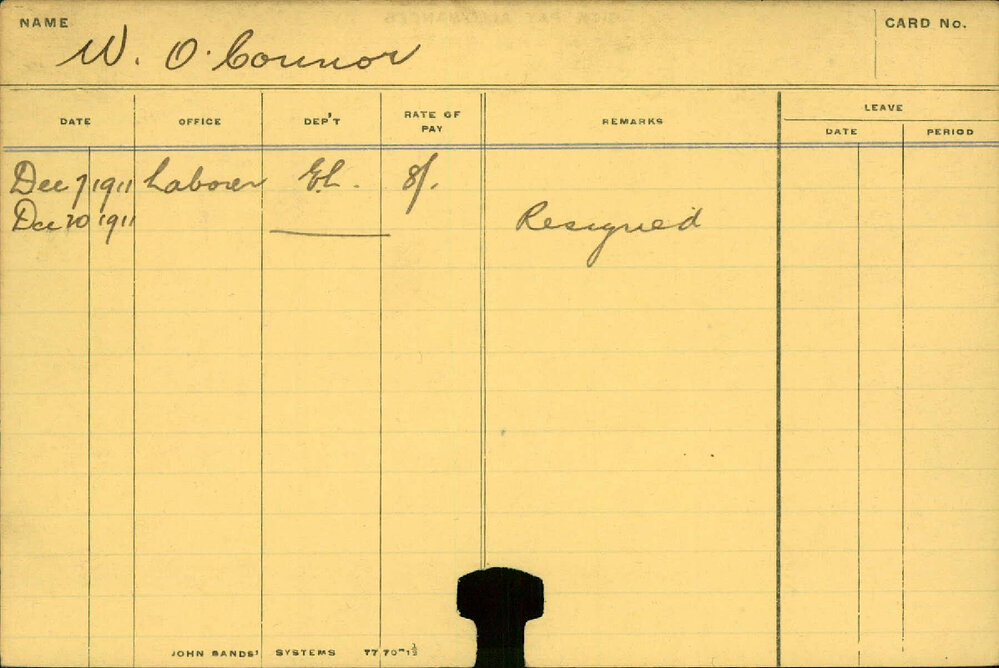 NAME W. O'Connor CARD No.
DATE OFFICE DEP'T RATE OF PAY REMARKS LEAVE
DATE PERIOD
Dec 7 1911 Laborer E.L. 8/.
Dec 20 1911 Resigned
JOHN SANDS' SYSTEMS